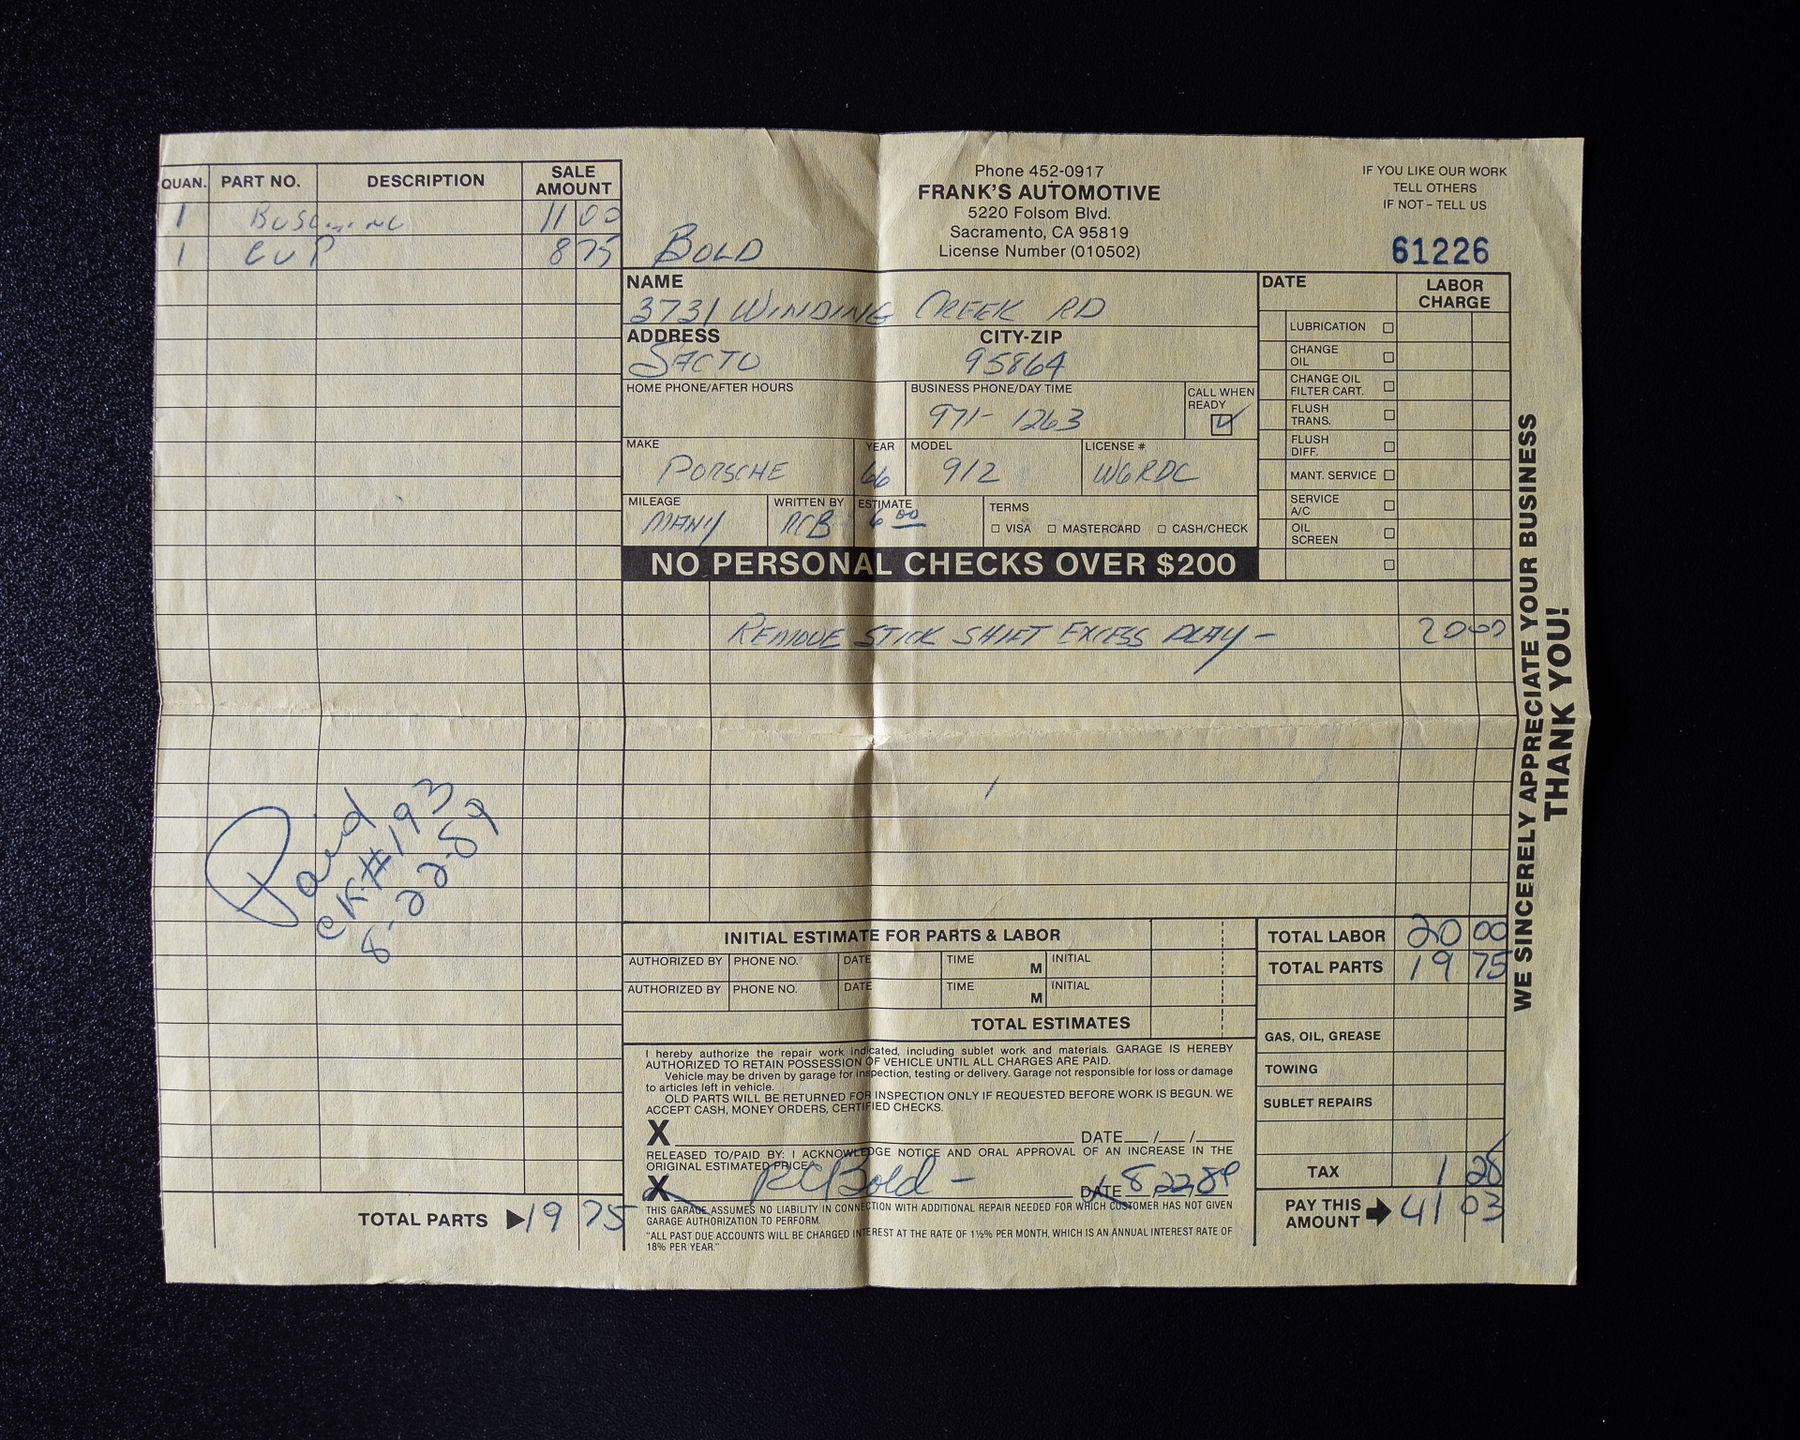 QUAN. PART NO. DESCRIPTION SALE AMOUNT
1 BUSHING 11 00
1 CUP 8 75
Paid
CK#193
8-22-89
TOTAL PARTS 19 75
Phone 452-0917
FRANK'S AUTOMOTIVE
5220 Folsom Blvd.
Sacramento, CA 95819
License Number (010502)
IF YOU LIKE OUR WORK
TELL OTHERS
IF NOT – TELL US
61226
BOLD
NAME
3731 WINDING CREEK RD
ADDRESS CITY-ZIP
SACTO 95864
HOME PHONE/AFTER HOURS BUSINESS PHONE/DAY TIME CALL WHEN READY
971-1263
MAKE YEAR MODEL LICENSE #
PORSCHE 66 912 WGRDC
MILEAGE WRITTEN BY ESTIMATE TERMS
MANY RCB 6 00 VISA MASTERCARD CASH/CHECK
NO PERSONAL CHECKS OVER $200
DATE LABOR CHARGE
LUBRICATION
CHANGE OIL
CHANGE OIL FILTER CART.
FLUSH TRANS.
FLUSH DIFF.
MANT. SERVICE
SERVICE A/C
OIL SCREEN
REMOVE STICK SHIFT EXCESS PLAY – 20 00
INITIAL ESTIMATE FOR PARTS & LABOR
AUTHORIZED BY PHONE NO. DATE TIME M INITIAL
AUTHORIZED BY PHONE NO. DATE TIME M INITIAL
TOTAL ESTIMATES
I hereby authorize the repair work indicated, including sublet work and materials. GARAGE IS HEREBY
AUTHORIZED TO RETAIN POSSESSION OF VEHICLE UNTIL ALL CHARGES ARE PAID.
Vehicle may be driven by garage for inspection, testing or delivery. Garage not responsible for loss or damage
to articles left in vehicle.
OLD PARTS WILL BE RETURNED FOR INSPECTION ONLY IF REQUESTED BEFORE WORK IS BEGUN. WE
ACCEPT CASH, MONEY ORDERS, CERTIFIED CHECKS.
X DATE / /
RELEASED TO/PAID BY: I ACKNOWLEDGE NOTICE AND ORAL APPROVAL OF AN INCREASE IN THE
ORIGINAL ESTIMATED PRICE.
X RCBold – DATE 8/22/89
THIS GARAGE ASSUMES NO LIABILITY IN CONNECTION WITH ADDITIONAL REPAIR NEEDED FOR WHICH CUSTOMER HAS NOT GIVEN
GARAGE AUTHORIZATION TO PERFORM.
"ALL PAST DUE ACCOUNTS WILL BE CHARGED INTEREST AT THE RATE OF 1½% PER MONTH, WHICH IS AN ANNUAL INTEREST RATE OF
18% PER YEAR."
TOTAL LABOR 20 00
TOTAL PARTS 19 75
GAS, OIL, GREASE
TOWING
SUBLET REPAIRS
TAX 1 28
PAY THIS AMOUNT 41 03
WE SINCERELY APPRECIATE YOUR BUSINESS
THANK YOU!